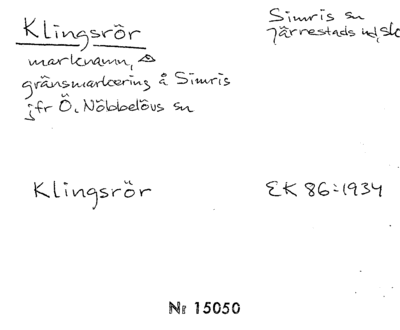 Klingsrör
Simris sn
Järrestads hd, sk
marknamn,
gränsmarkering å Simris
jfr Ö. Nöbbelövs sn
Klingsrör
EK 86:1934
Nr 15050